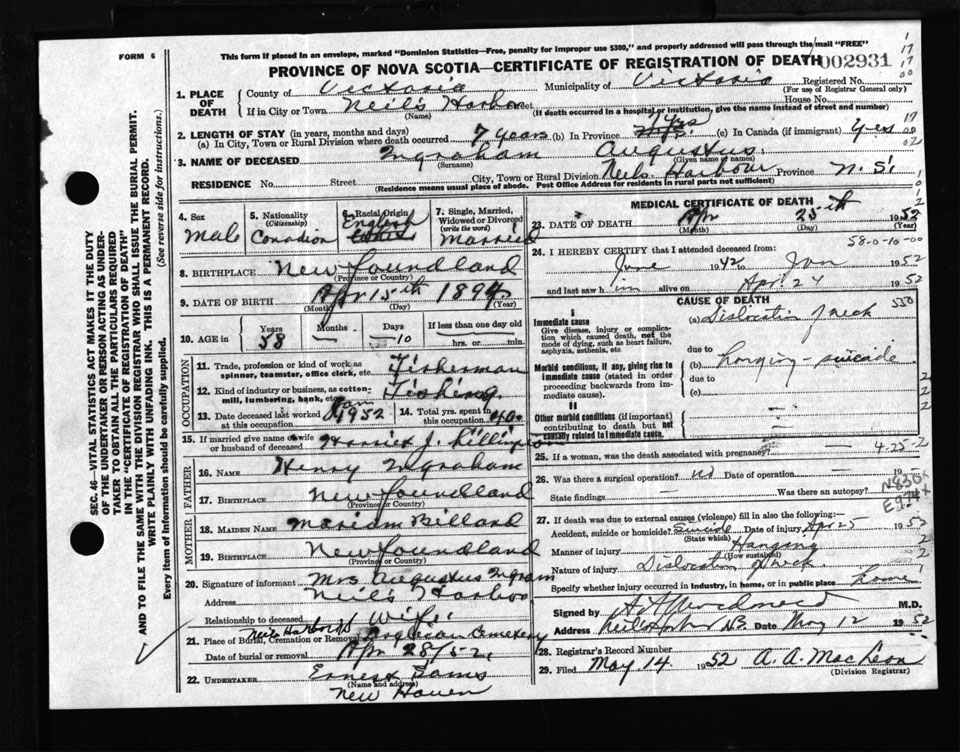 FORM 6
This form if placed in an envelope, marked "Dominion Statistics—Free, penalty for improper use $300," and properly addressed will pass through the mail "FREE"
PROVINCE OF NOVA SCOTIA—CERTIFICATE OF REGISTRATION OF DEATH 002931
1. PLACE OF DEATH
County of Victoria Municipality of Victoria Registered No.
(For use of Registrar General only)
If in City or Town Neil's Harbor Street House No.
(Name) (If death occurred in a hospital or institution, give the name instead of street and number)
2. LENGTH OF STAY (in years, months and days)
(a) In City, Town or Rural Division where death occurred 7 years (b) In Province 7 yrs (c) In Canada (if immigrant) 7 yrs
3. NAME OF DECEASED Ingraham Augustus
(Surname) (Given name or names)
RESIDENCE No. Street City, Town or Rural Division Neils Harbour Province N. S.
(Residence means usual place of abode. Post Office Address for residents in rural parts not sufficient)
4. Sex Male
5. Nationality (Citizenship) Canadian
6. Racial Origin English
7. Single, Married, Widowed or Divorced (write the word) Married
8. BIRTHPLACE Newfoundland
(Province or Country)
9. DATE OF BIRTH Apr 15th 1894
(Month) (Day) (Year)
10. AGE in Years 58 Months — Days 10 If less than one day old hrs. or min.
OCCUPATION
11. Trade, profession or kind of work as spinner, teamster, office clerk, etc. Fisherman
12. Kind of industry or business, as cotton-mill, lumbering, bank, etc. Fishing
13. Date deceased last worked at this occupation Jan 1952 14. Total yrs. spent in occup'n 40
15. If married give name of wife or husband of deceased Harriet J.
FATHER
16. NAME Henry Ingraham
17. BIRTHPLACE Newfoundland
(Province or Country)
MOTHER
18. MAIDEN NAME Mariam Billard
19. BIRTHPLACE Newfoundland
(Province or Country)
20. Signature of informant Mrs Augustus Ingram
Address Neil's Harbor
Relationship to deceased Wife
21. Place of Burial, Cremation or Removal Neil's Harbor Anglican Cemetery
Date of burial or removal Apr 28/52
22. UNDERTAKER Ernest
(Name and address)
New Haven
MEDICAL CERTIFICATE OF DEATH
23. DATE OF DEATH Apr 25th 1952
(Month) (Day) (Year)
58-0-10-00
24. I HEREBY CERTIFY that I attended deceased from:
June 1942 to Jan 1952
and last saw him alive on Apr 24 1952
CAUSE OF DEATH
I
Immediate cause
Give disease, injury or complication which caused death, not the mode of dying, such as heart failure, asphyxia, asthenia, etc
(a) Dislocation of neck
due to
Morbid conditions, if any, giving rise to immediate cause (stated in order proceeding backwards from immediate cause).
(b) hanging - suicide
due to
(c)
II
Other morbid conditions (if important) contributing to death but not causally related to immediate cause.
25. If a woman, was the death associated with pregnancy? 4-25-2
26. Was there a surgical operation? no Date of operation — 19 -
State findings — Was there an autopsy?
27. If death was due to external causes (violence) fill in also the following:
Accident, suicide or homicide? Suicide Date of injury Apr 25 1952
(State which)
Manner of injury Hanging
(How sustained)
Nature of injury Dislocation of neck
Specify whether injury occurred in Industry, in home, or in public place home
Signed by M.D.
Address Neils Harbor N.S. Date May 12 1952
28. Registrar's Record Number
29. Filed May 14 1952 A. A. MacLean
(Division Registrar)
SEC. 46—VITAL STATISTICS ACT MAKES IT THE DUTY
OF THE UNDERTAKER OR PERSON ACTING AS UNDER-
TAKER TO OBTAIN ALL THE PARTICULARS REQUIRED
IN THE "CERTIFICATE OF REGISTRATION OF DEATH"
AND TO FILE THE SAME WITH THE DIVISION REGISTRAR WHO SHALL ISSUE THE BURIAL PERMIT.
WRITE PLAINLY WITH UNFADING INK. THIS IS A PERMANENT RECORD.
Every item of Information should be carefully supplied. (See reverse side for instructions.)